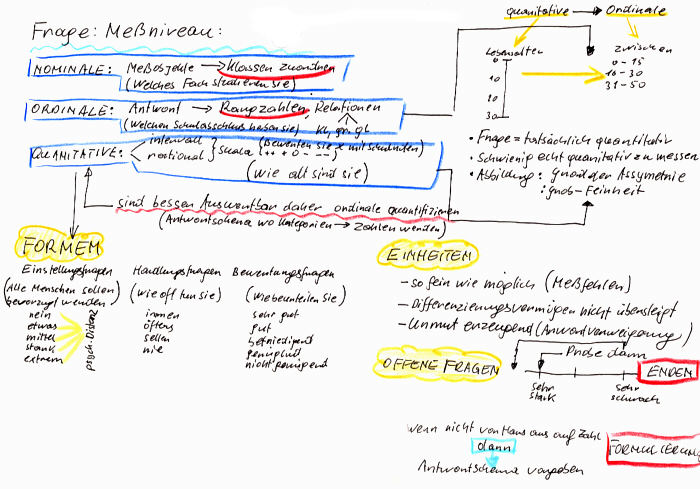 Frage: Meßniveau:
NOMINALE: Meßobjekte → Klassen zuordnen
(Welches Fach studieren Sie)
ORDINALE: Antwort → Rangzahlen, Relationen
(Welchen Schulabschluss haben Sie) kl, gr, gl
QUANITATIVE: intervall
rational
Skala (Bewerten Sie mit Schulnoten)
(++ + 0 - --)
(Wie alt sind sie)
sind besser Auswertbar daher ordinale quantifizieren
(Antwortschema wo Kategorien → Zahlen werden)
quantitative → Ordinale
Lesewalter
0
10
10
30
zwischen
0-15
16-30
31-50
• Frage = tatsächlich quantitativ
• Schwierig echt quantitativ zu messen
• Abbildung: Grad der Assymetrie
: Grob-Feinheit
FORMEM
Einstellungsfragen
(Alle Menschen sollen bevorzugt werden)
nein
etwas
mittel
stark
extrem
psych. Distanz
Handlungsfragen
(Wie oft tun sie)
immer
öfters
selten
nie
Bewertungsfragen
(Wie beurteilen Sie)
sehr gut
gut
befriedigend
genügend
nicht genügend
EINHEITEM
- so fein wie möglich (Meßfehler)
- Differenzierungsvermögen nicht übersteigt
- Unmut erzeugend (Antwortverweigerung)
OFFENE FRAGEN
Probe dann
sehr stark
sehr schwach
ENDEM
wenn nicht von Haus aus auf Zahl
dann
Antwortschema vorgeben
FORMULIERUNG